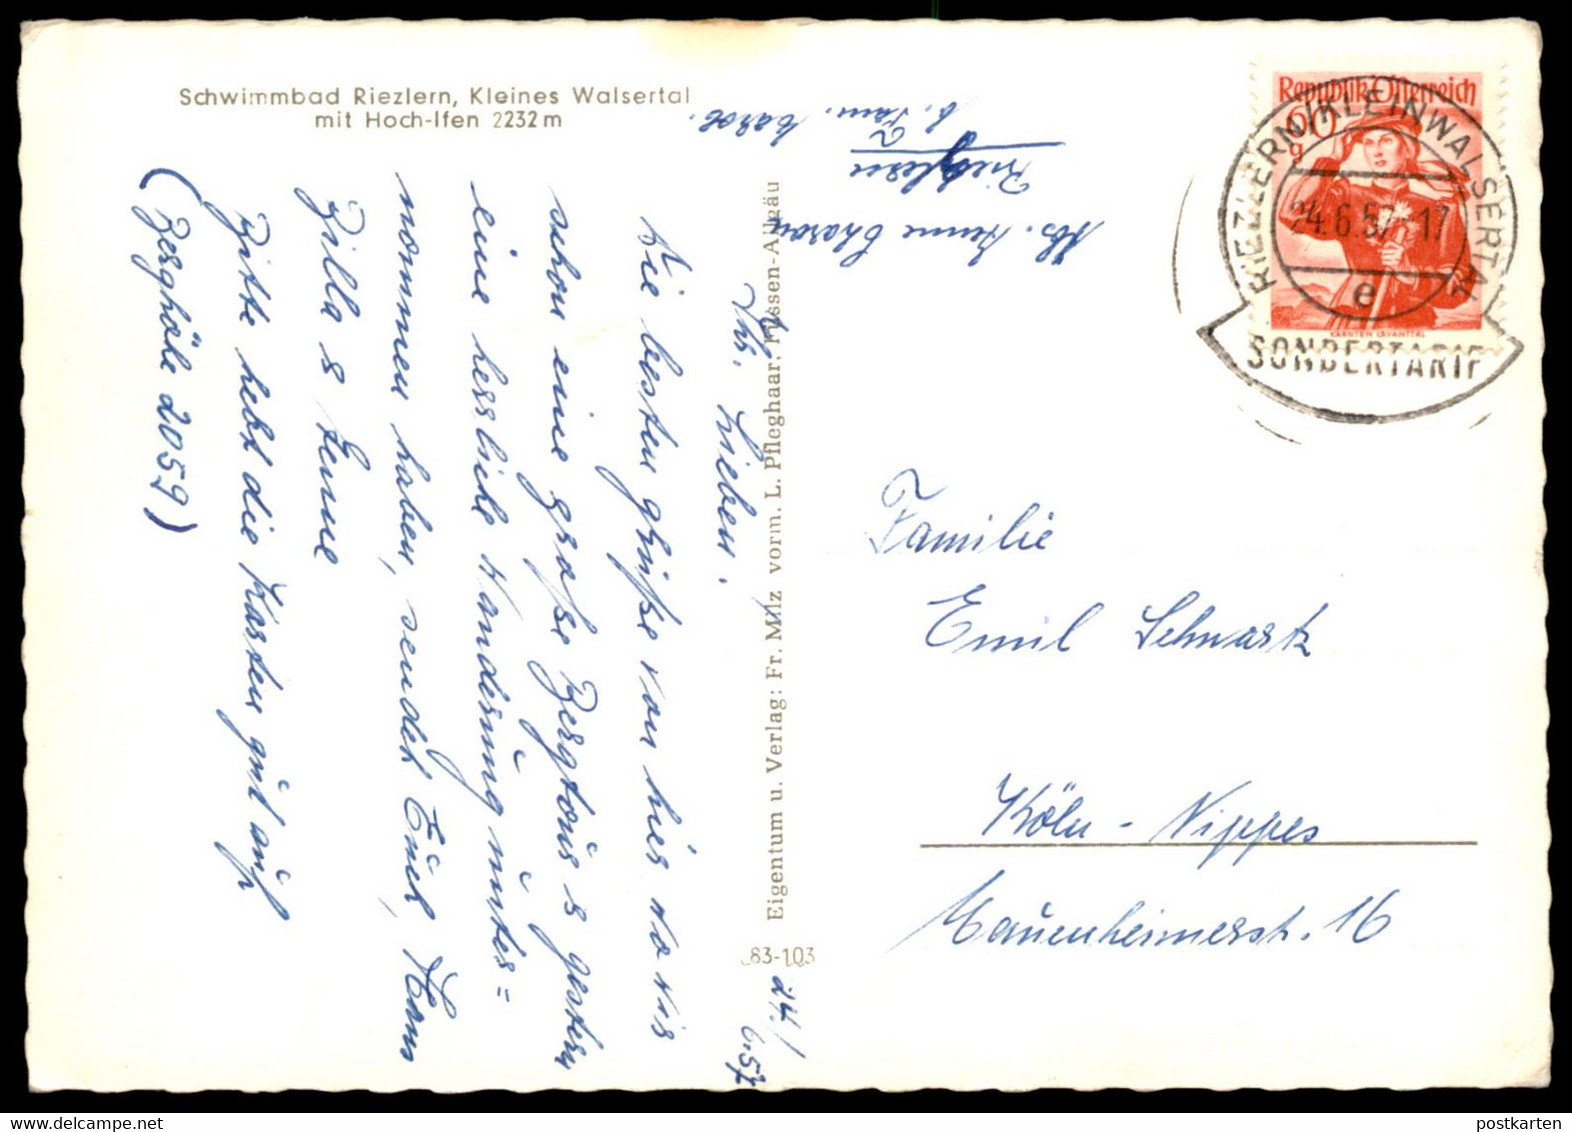 Schwimmbad Riezlern, Kleines Walsertal
mit Hoch-Ifen 2232 m
24./6.57
Ihr Lieben.
Die besten Grüße von hier wo wir
schon eine große Bergtour gestern
eine herrliche Wanderung unter=
nommen haben, sendet Euch, Hans
Zilla &
Bitte hebt die Karten gut auf
(Berghöhe 2059)
Abs.
Riezlern
b. Fam.
Eigentum u. Verlag: Fr. Milz vorm. L. Pfleghaar, Füssen-Allgäu
83-103
Republik Österreich
60 g
KÄRNTEN LAVANTTAL
RIEZLERN/KLEINWALSERTAL
24.6.57-17
e
SONDERTARIF
Familie
Emil Schwartz
Köln-Nippes
Mauenheimerstr. 16
postkarten